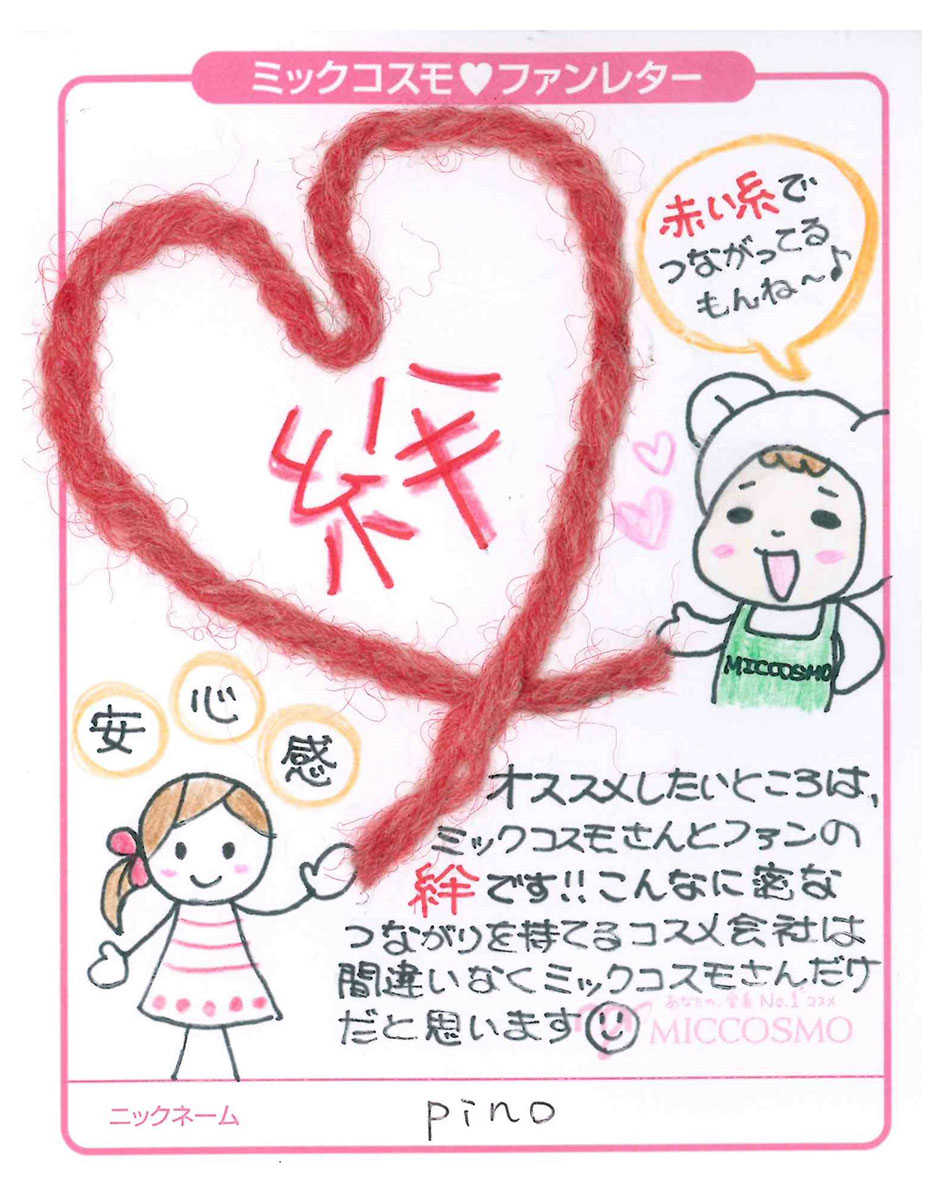 ミックコスモ♥ファンレター
赤い糸で
つながってる
もんね～♪
絆
MICCOSMO
安
心
感
オススメしたいところは、
ミックコスモさんとファンの
絆です!!こんなに密な
つながりを持てるコスメ会社は
間違いなくミックコスモさんだけ
だと思います
あなたの、愛着No.1コスメ
MICCOSMO
ニックネーム
pino